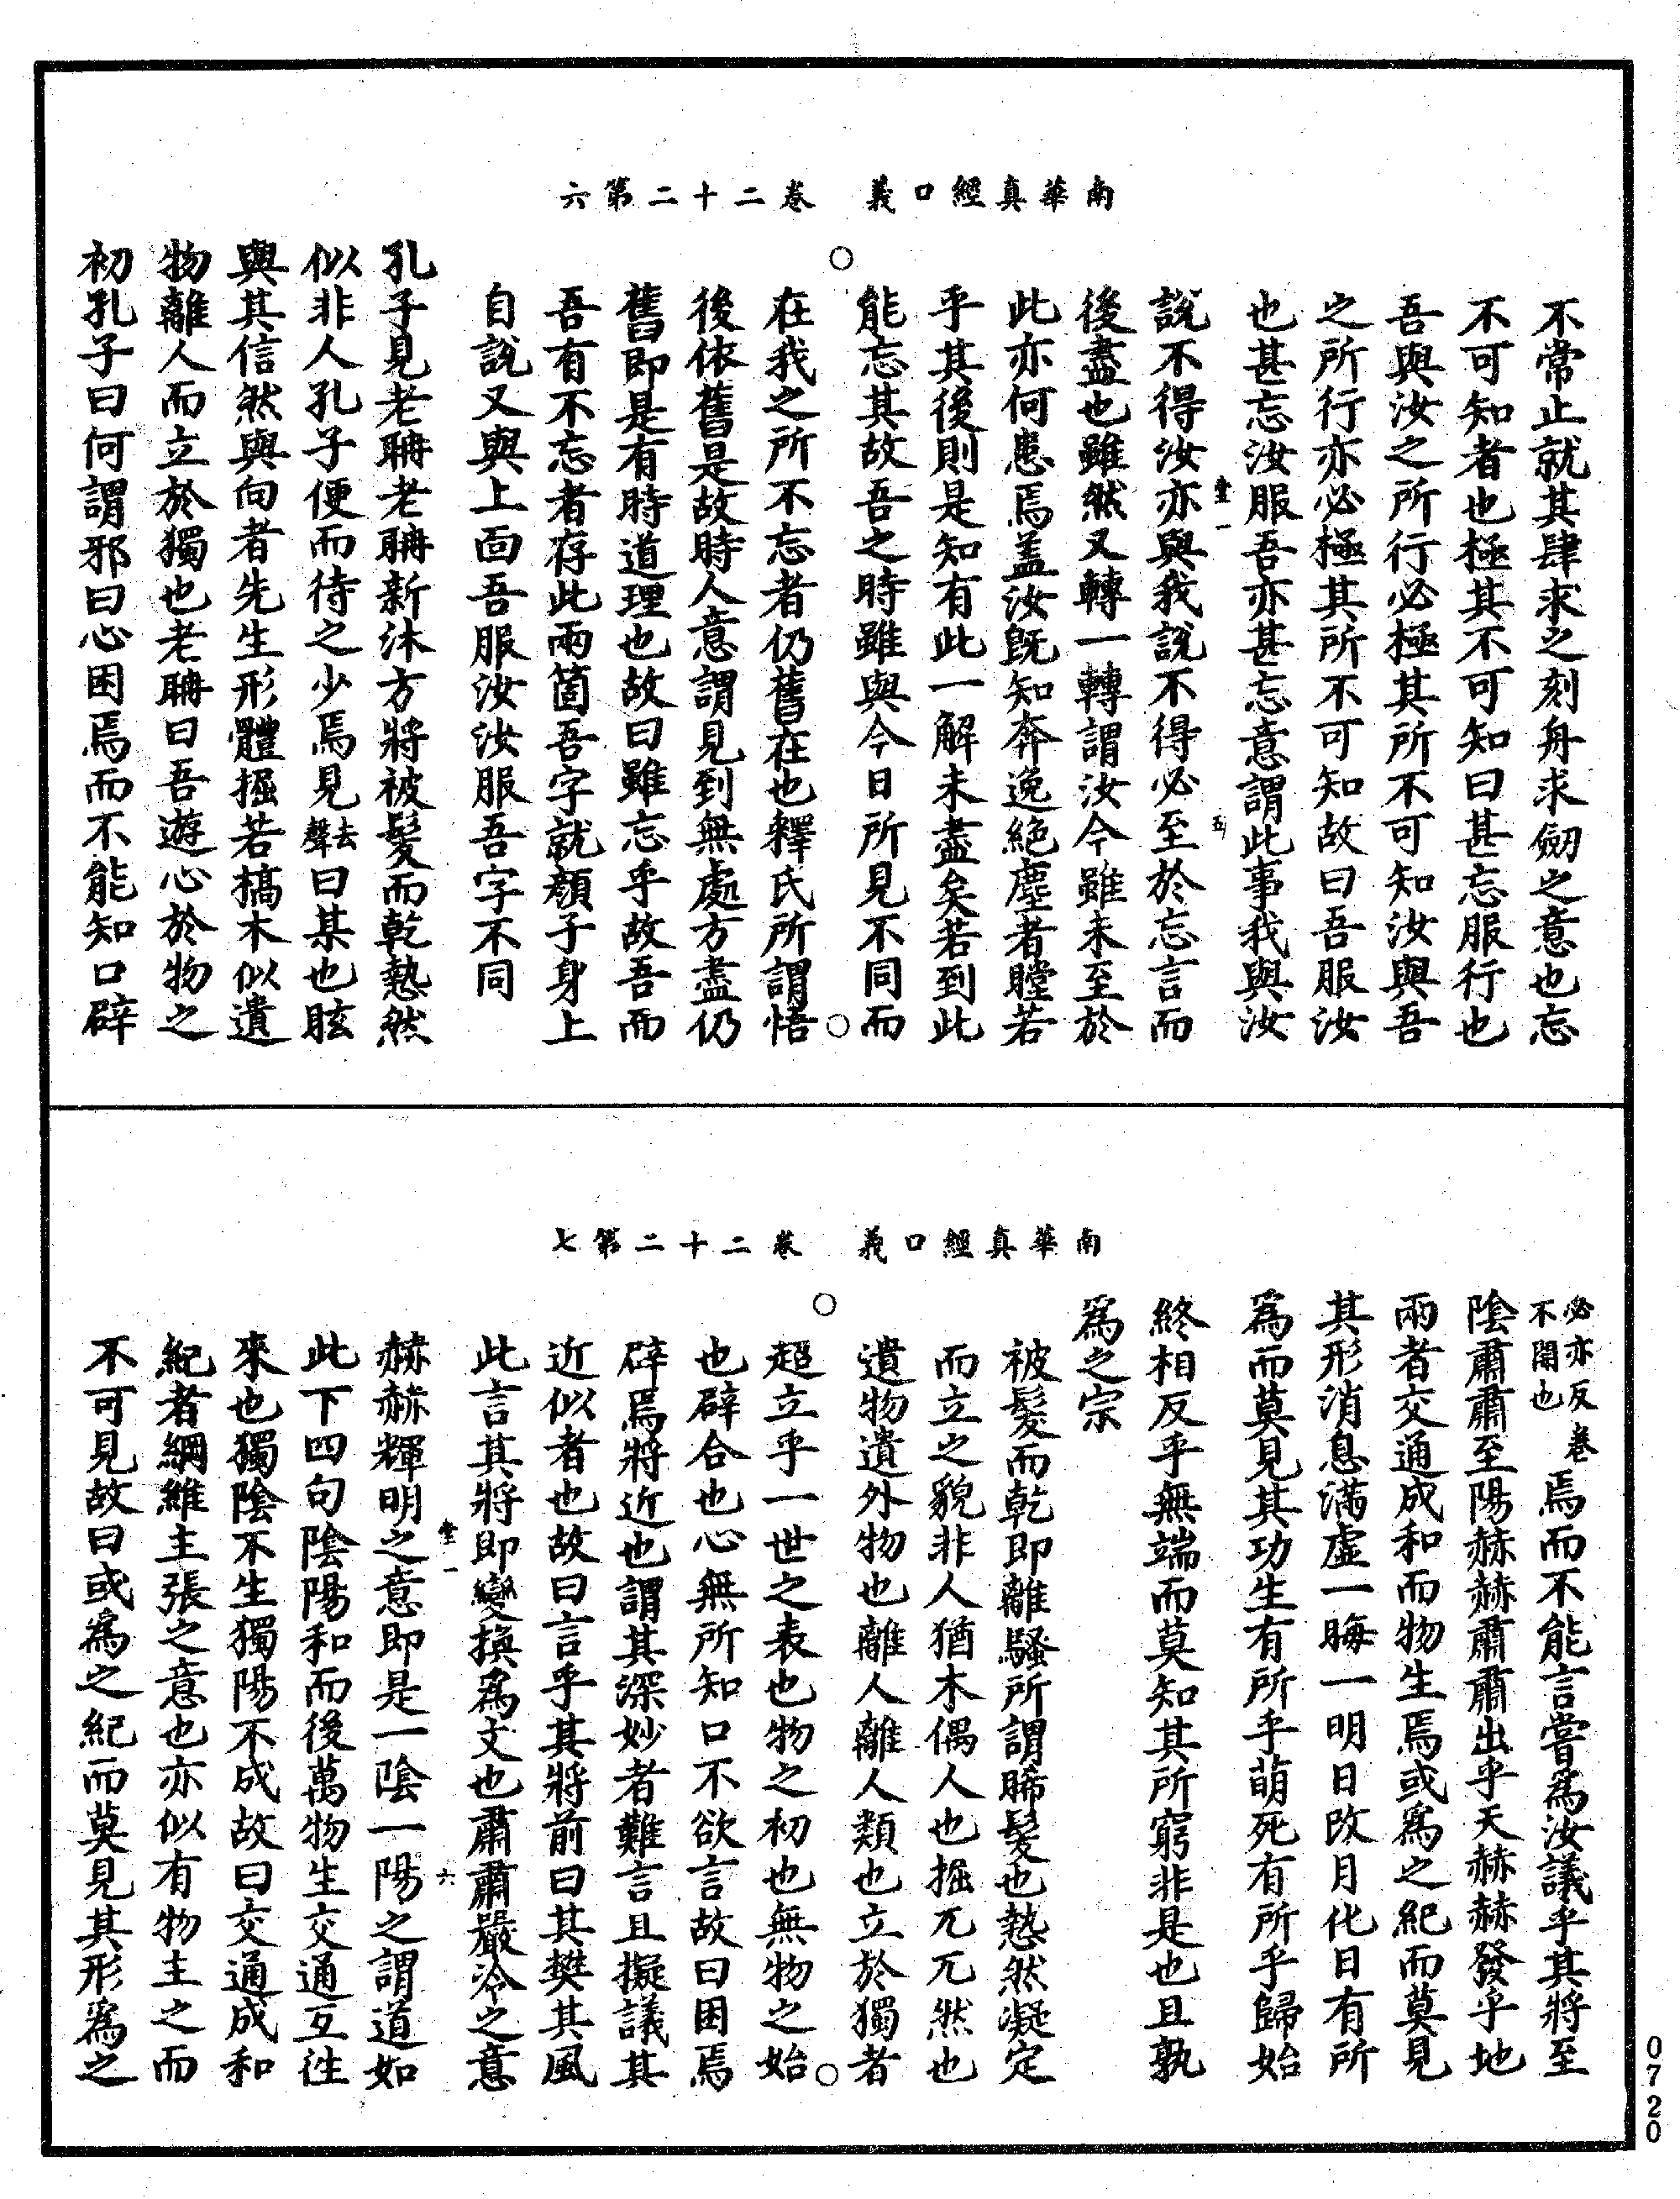 南華真經口義　卷二十二第六
不常止就其肆求之刻舟求劒之意也忘
不可知者也極其不可知曰甚忘服行也
吾與汝之所行必極其所不可知汝與吾
之所行亦必極其所不可知故曰吾服汝
也甚忘汝服吾亦甚忘意謂此事我與汝
說不得汝亦與我說不得必至於忘言而
後盡也雖然又轉一轉謂汝今雖未至於
此亦何患焉盖汝旣知奔逸絕塵者瞠若
乎其後則是知有此一解未盡矣若到此
能忘其故吾之時雖與今日所見不同而
在我之所不忘者仍舊在也釋氏所謂悟
後依舊是故時人意謂見到無處方盡仍
舊即是有時道理也故曰雖忘乎故吾而
吾有不忘者存此兩箇吾字就顏子身上
自說又與上面吾服汝汝服吾字不同
孔子見老聃老聃新沐方將被髮而乾熱然
似非人孔子便而待之少焉見去聲曰某也眩
與其信然與向者先生形體掘若槁木似遺
物離人而立於獨也老聃曰吾遊心於物之
初孔子曰何謂邪曰心困焉而不能知口辟
南華真經口義　卷二十二第七
必亦反卷不開也焉而不能言嘗為汝議乎其將至
陰肅肅至陽赫赫肅肅出乎天赫赫發乎地
兩者交通成和而物生焉或為之紀而莫見
其形消息滿虛一晦一明日改月化日有所
為而莫見其功生有所乎萌死有所乎歸始
終相反乎無端而莫知其所窮非是也且孰
為之宗
被髮而乾即離騷所謂晞髮也熱然凝定
而立之貌非人猶木偶人也掘兀兀然也
遺物遺外物也離人離人類也立於獨者
超立乎一世之表也物之初也無物之始
也辟合也心無所知口不欲言故曰困焉
辟焉將近也謂其深妙者難言且擬議其
近似者也故曰言乎其將前曰其樊其風
此言其將即變換為文也肅肅嚴冷之意
赫赫輝明之意即是一陰一陽之謂道如
此下四句陰陽和而後萬物生交通互往
來也獨陰不生獨陽不成故曰交通成和
紀者綱維主張之意也亦似有物主之而
不可見故曰或為之紀而莫見其形為之
0720